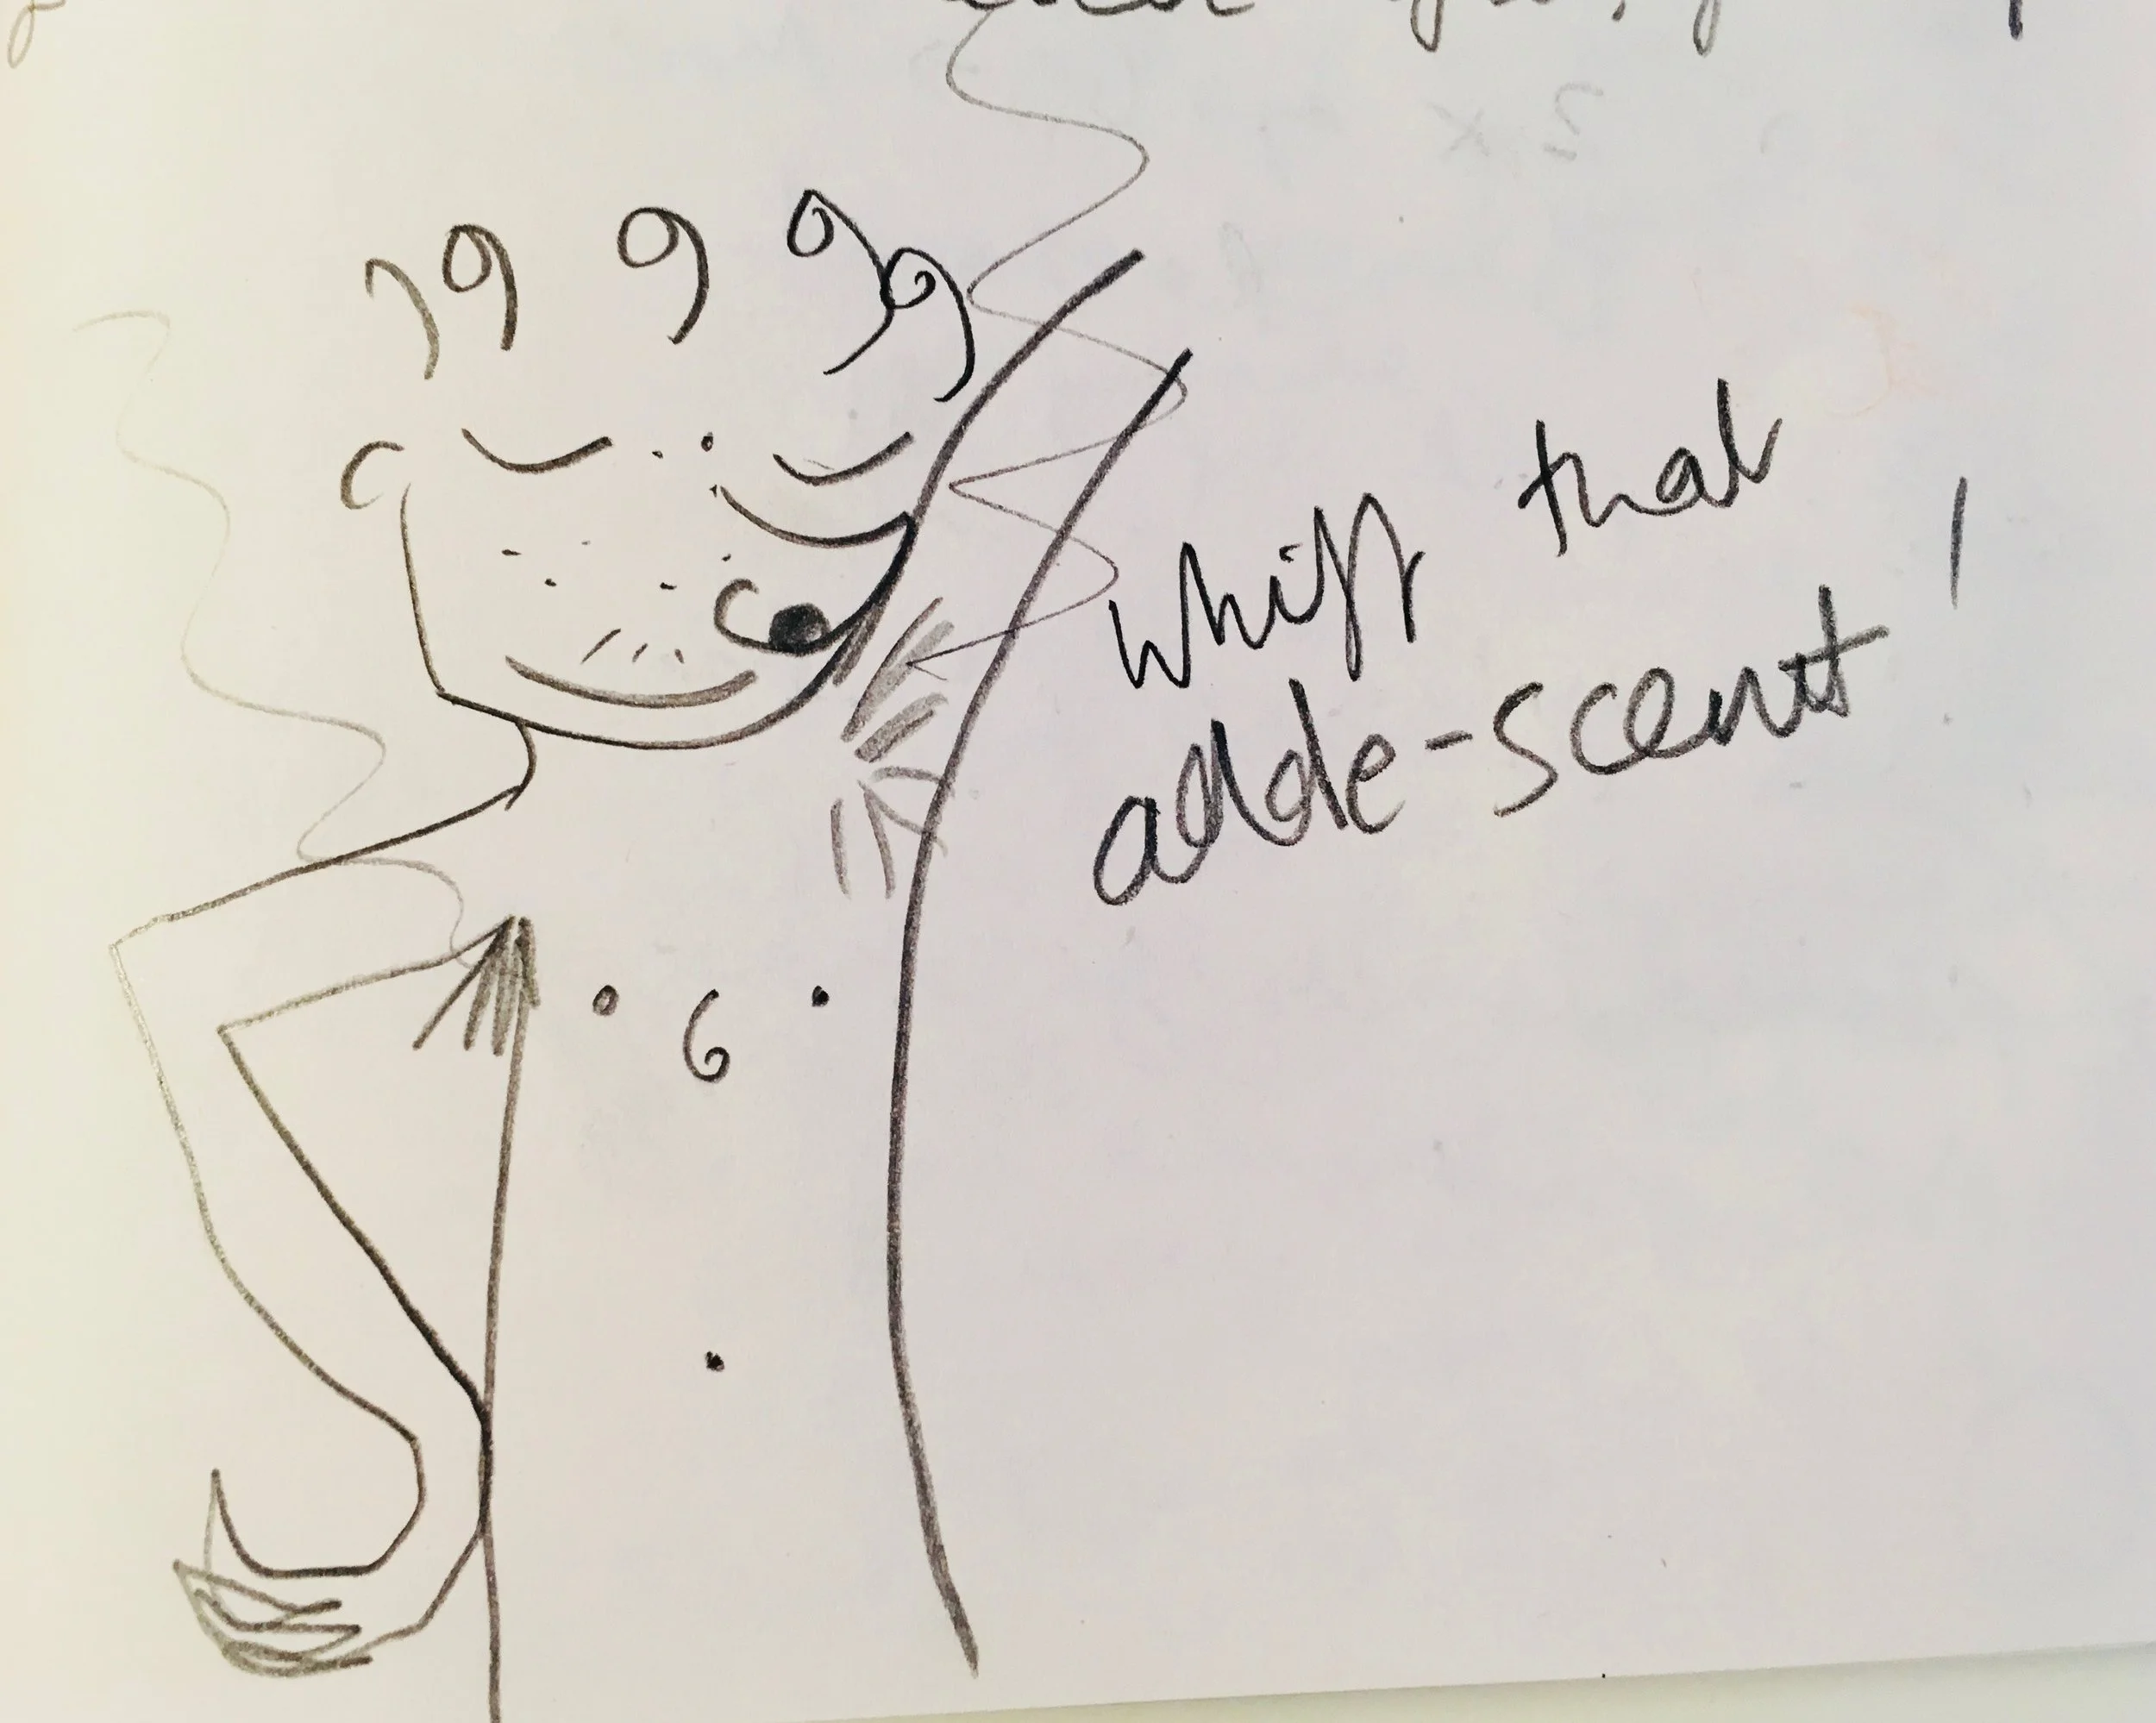 whiff that
adole-scent!